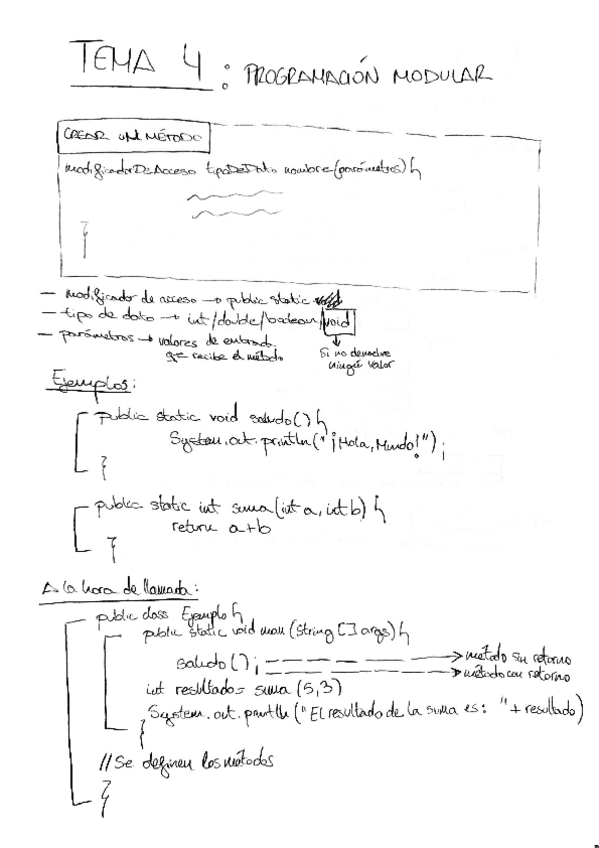 TEMA 4: PROGRAMACIÓN MODULAR
CREAR UN MÉTODO
modificadorDeAcceso tipoDeDato nombre(parámetros) {
}
— modificador de acceso → public static
— tipo de dato → int/double/boolean/void
— parámetros → valores de entrada
que recibe el método
Si no devuelve
ningún valor
Ejemplos:
public static void saludo() {
System.out.println("¡Hola, Mundo!");
}
public static int suma(int a, int b) {
return a+b
}
A la hora de llamada:
public class Ejemplo {
public static void main (String [] args) {
saludo(); → método sin retorno
→ método con retorno
int resultado = suma (5,3)
System.out.println ("El resultado de la suma es: " + resultado)
}
// Se definen los métodos
}